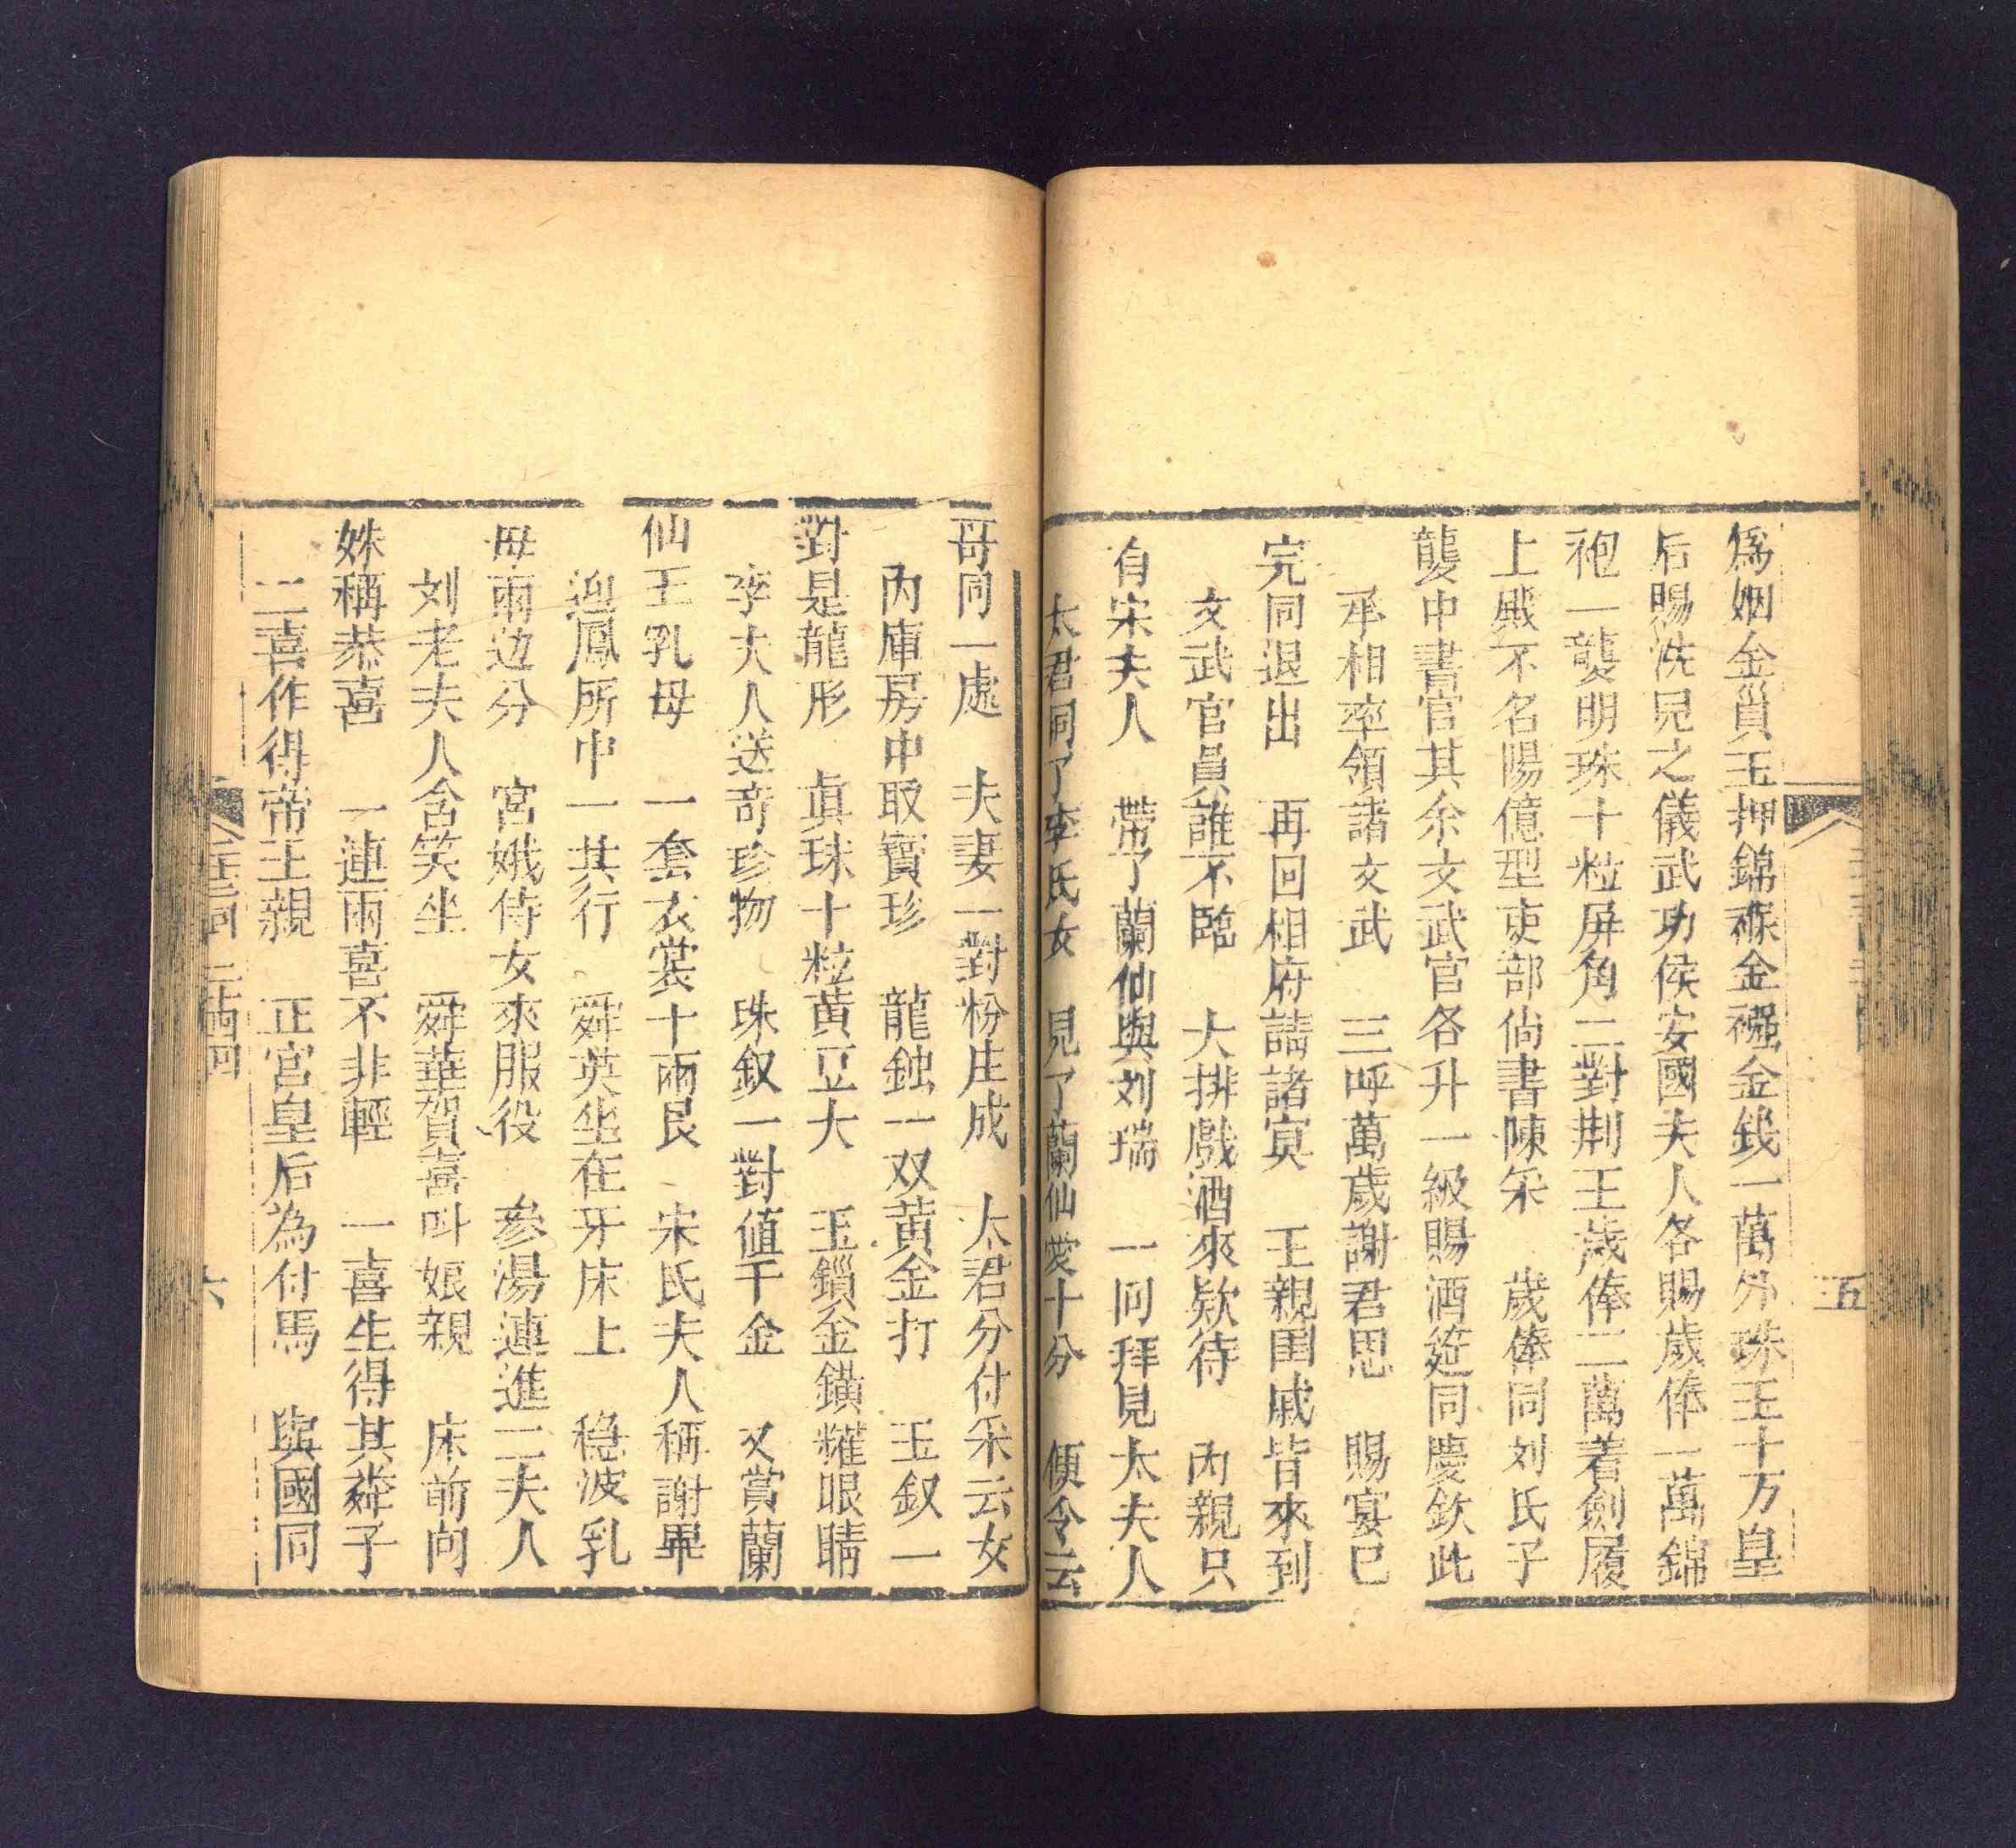 為姻金貲玉押錦褓金襁金錢一萬外珠玉十万皇
后賜洗兒之儀武功侯安國夫人各賜歲俸一萬錦
袍一襲明珠十粒屏角二對荆王歲俸二萬着劍履
上殿不名陽億型吏部尚書陳采　歲俸同刘氏子
襲中書官其余文武官各升一級賜酒筵同慶欽此
丞相率領諸文武　三呼萬歲謝君恩　賜宴已
完同退出　再回相府請諸賓　王親国戚皆來到
文武官員誰不臨　大排戲酒來欵待　內親只
有宋夫人　帶了蘭仙與刘瑞　一同拜見太夫人
太君同了李氏女　見了蘭仙愛十分　便令云
五
哥同一處　夫妻一對粉庄成　太君分付采云女
內庫房中取寳珍　龍鈠一双黄金打　玉釵一
對是龍形　真珠十粒黄豆大　玉鎖金鐄耀眼睛
李夫人送奇珍物　珠釵一對値千金　又賞蘭
仙王乳母　一套衣裳十兩艮　宋氏夫人稱謝畢
迎鳳所中一共行　舜英坐在牙床上　穏波乳
母兩边分　宮娥侍女來服役　參湯連進二夫人
刘老夫人含笑坐　舜華賀喜叫娘親　床前向
姝稱恭喜　一連兩喜不非輕　一喜生得其粦子
二喜作得帝王親　正宮皇后為付馬　與國同
六